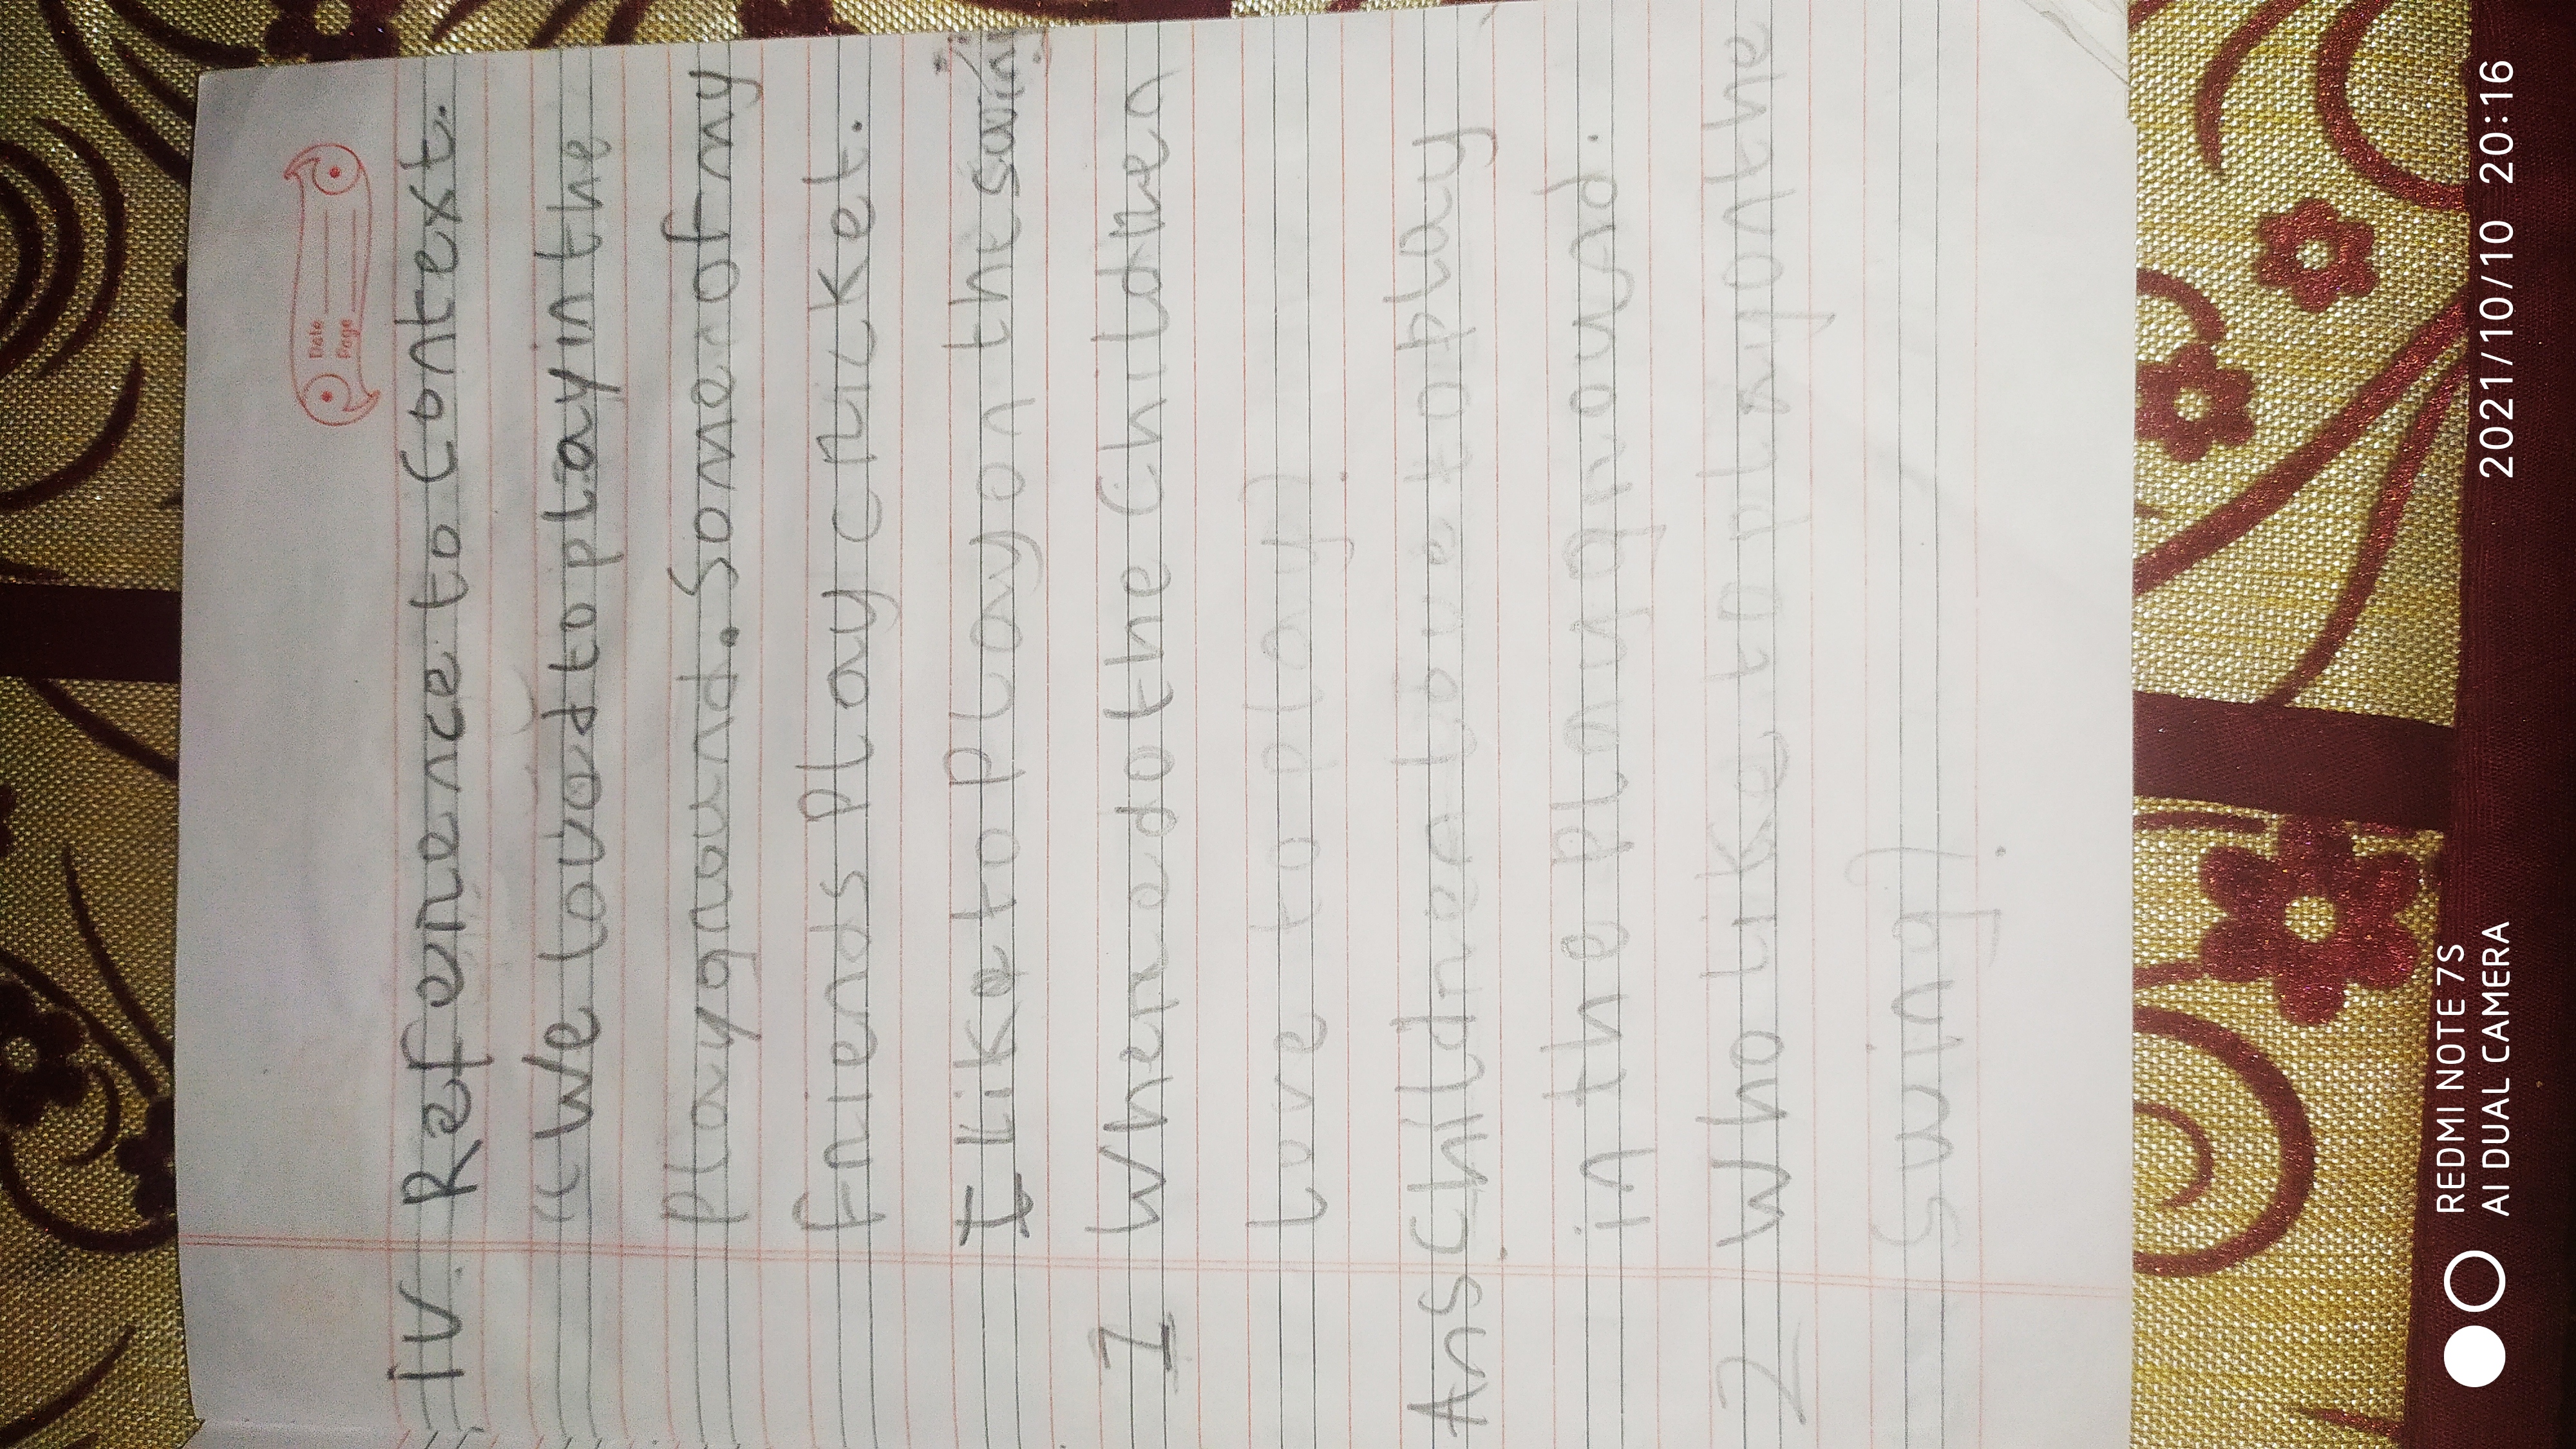 Date
Page
IV. Reference to Context.
"We loved to play in the
playground. Some of my
friends play cricket.
I like to play on the swing."
1 Where do the Children
love to play?
Ans Children love to play
in the playground.
2 Who like to play on the
swing?
REDMI NOTE 7S
AI DUAL CAMERA
2021/10/10 20:16